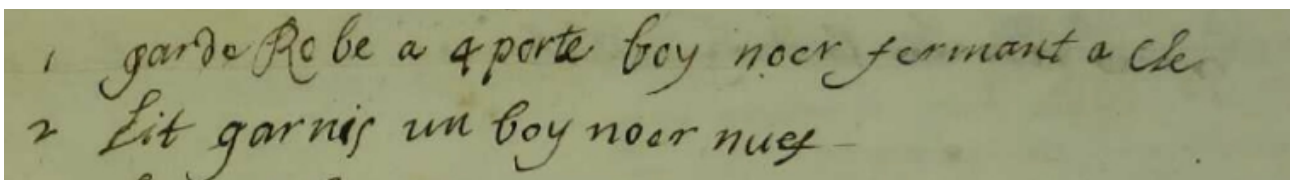 1 garde Robe a 4 porte boy noer fermant a Cle
2 Lit garnis un boy noer nuef